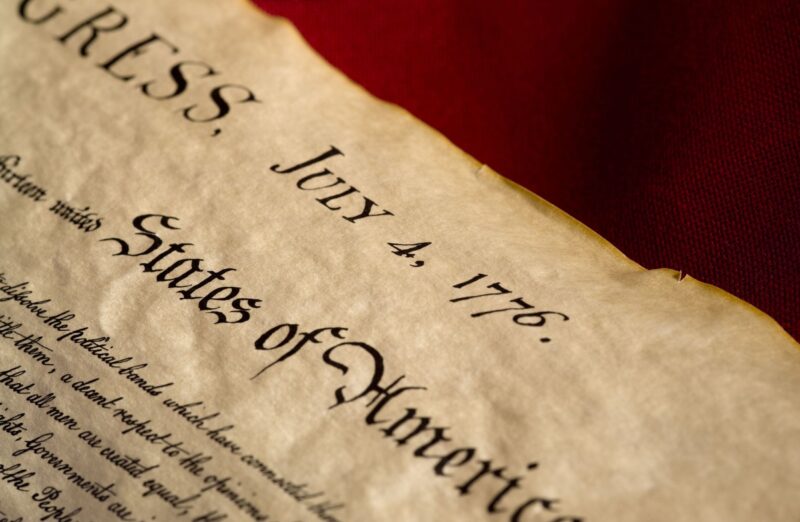 GRESS, JULY 4, 1776.
thirteen united States of America
to dissolve the political bands which have connected them
with them, a decent respect to the opinions
that all men are created equal, th
ights, Governments are
of the People